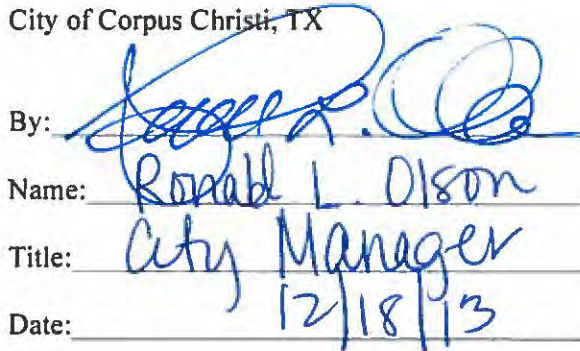 City of Corpus Christi, TX
By:
Name: Ronald L. Olson
Title: City Manager
Date: 12/18/13